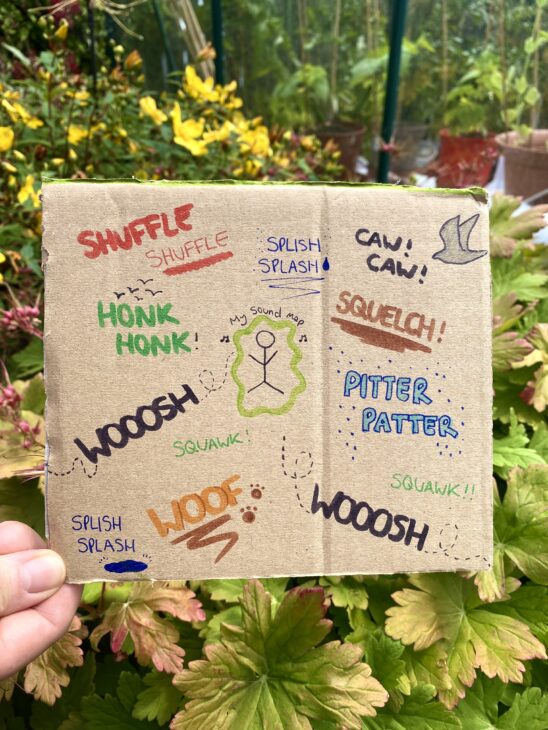 SHUFFLE
SHUFFLE
SPLISH
SPLASH
CAW!
CAW!
HONK
HONK!
My Sound Map
SQUELCH!
WOOOSH
PITTER
PATTER
SQUAWK!
WOOF
SQUAWK!!
WOOOSH
SPLISH
SPLASH